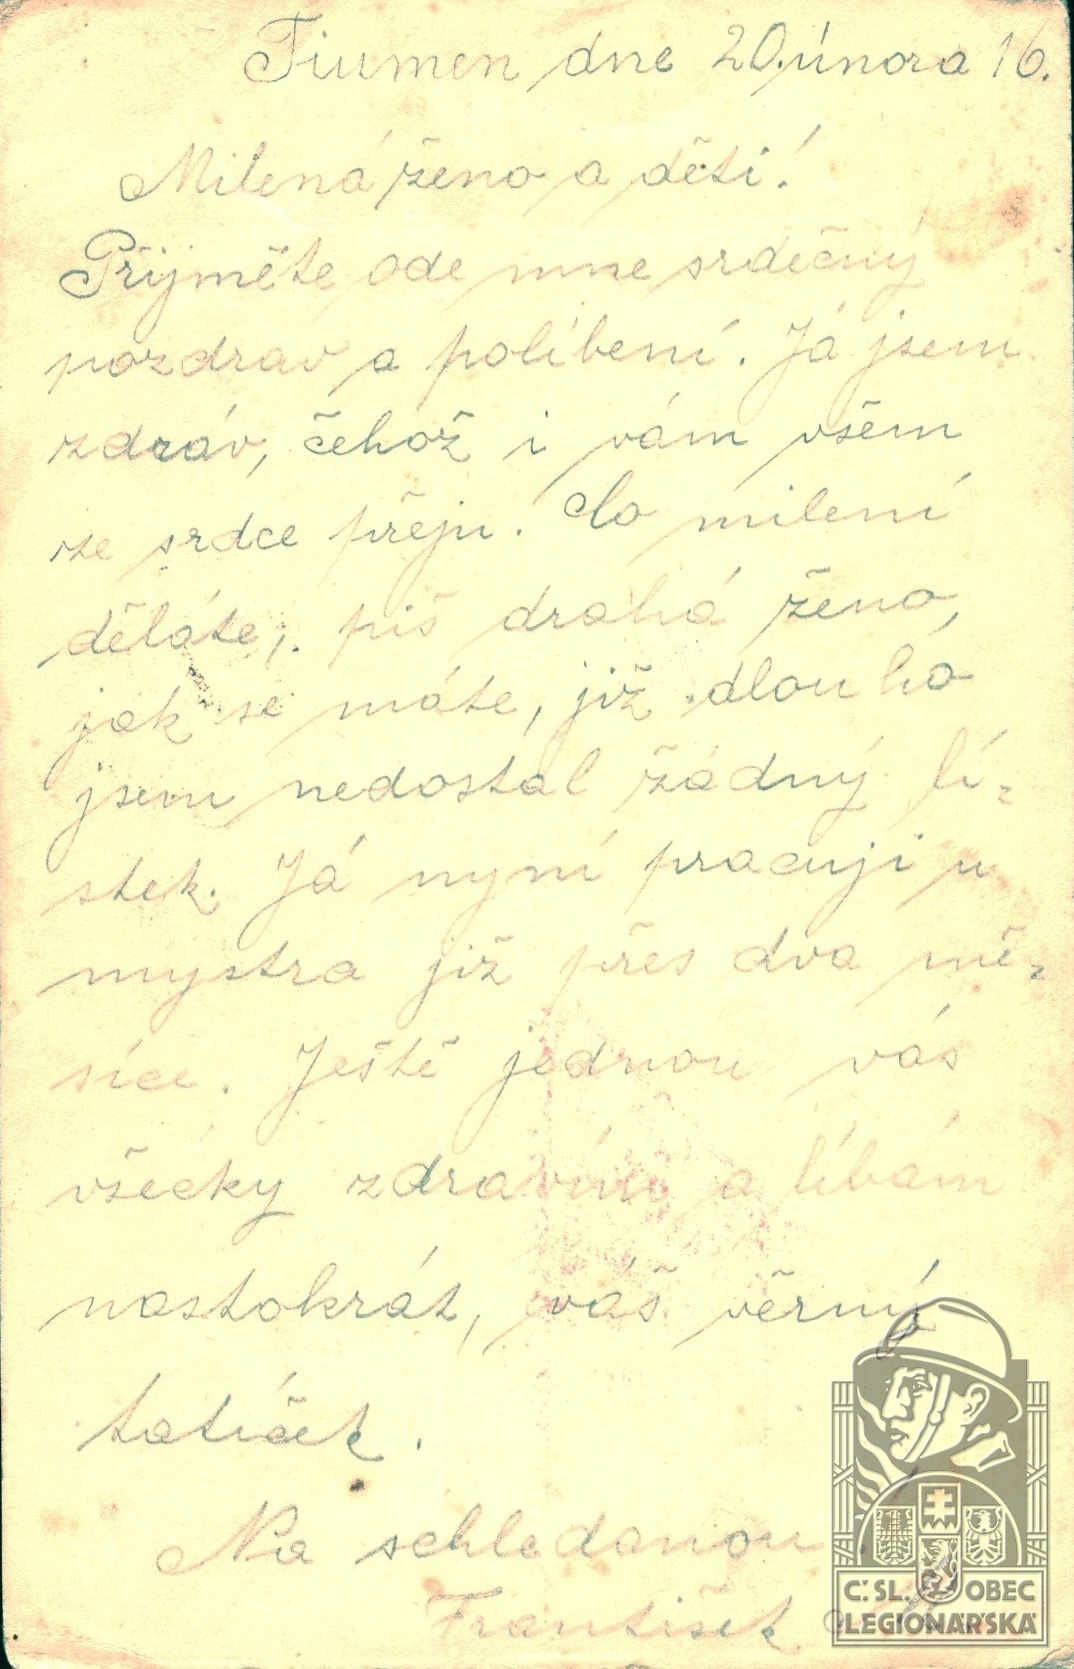 Tiumen dne 20. února 16.
Milená ženo a děti!
Přijměte ode mne srdečný
pozdrav a políbení. Já jsem
zdráv, čehož i vám všem
ze srdce přeju. Co milení
děláte, piš drahá ženo,
jak se máte, již dlouho
jsem nedostal žádný lí-
stek. Já nyní pracuji u
mystra již přes dva mě-
síce. Ještě jednou vás
všecky zdravím a líbám
nastokrát, váš věrný
tatíček.
Na schledanou
František
Č.SL. OBEC
LEGIONÁŘSKÁ